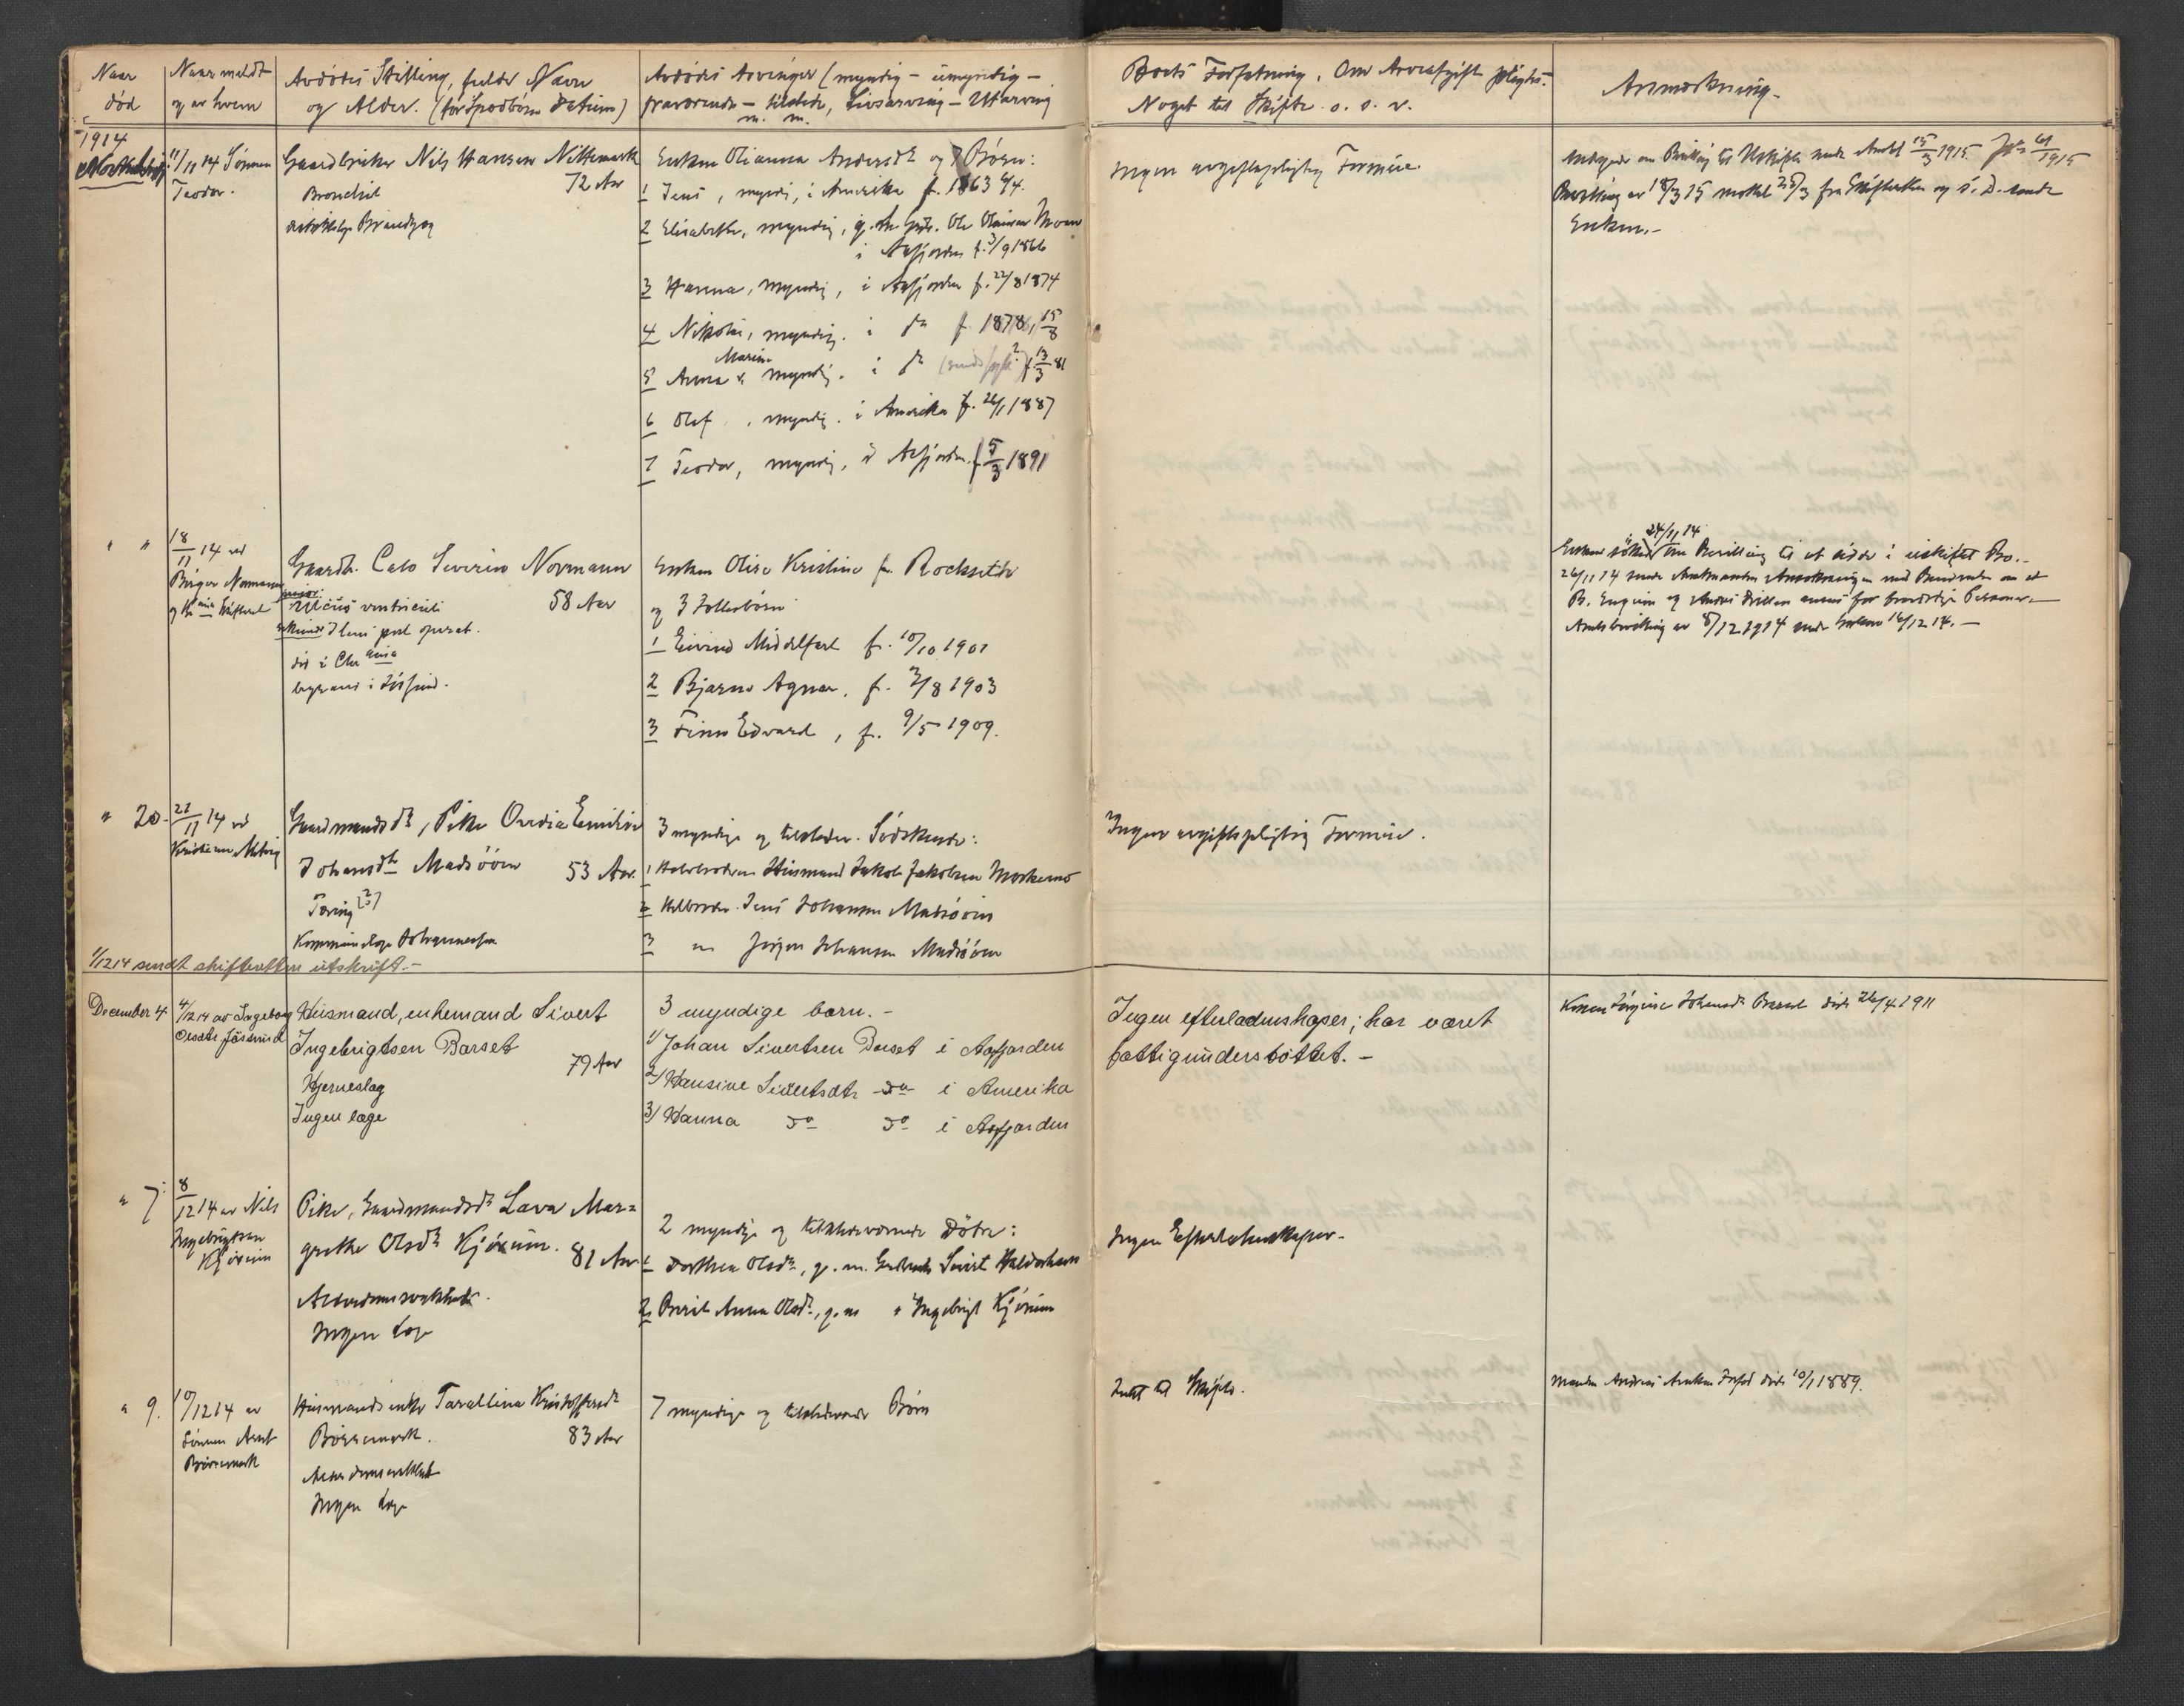 Naar
død
Naar meldt
og av hvem
Avdødes Stilling, fulde Navn
og Alder. (for Spædbørn Datum)
Avdødes Arvinger (myndig - umyndig -
fraværende - tilstede, Livsarving - Utarving
m. m.
Boets Forfatning. Om Arveafgift pligtig.
Noget til Skifte o. s. v.
Anmerkning.
1914
11/11 14 Sønnen
Teodor.
Gaardbruker Nils Hansen Nittamark
72 Aar
Bronchit
Enken Olianna Andersdtr og 7 Børn:
1 Jens, myndig, i Amerika f. 1863 4/4.
2 Elisabeth, myndig, g. m. Gbr. Ole Olaisen Moan
i Aafjorden f. 3/9 1866
3 Hanna, myndig, i Aafjorden f. 22/8 1874
4 Nikolai, myndig. i do f. 1878, 15/8
5 Anna Marie, myndig. i do (sindssyk?) f. 13/3 81
6 Olaf, myndig. i Amerika f. 26/1 1887
7 Teodor, myndig, i Aafjorden f. 5/3 1891
Ingen avgiftspligtig Formue.
Andragende om Bevilling til Uskifte sendt Amtet 15/3 1915. Jr. 61/1915
Bevilling av 18/3 15 mottat 25/3 fra Skifteretten og s. D. sendt
Enken.-
" "
18/11 14 ved
Birger Normann
Gaardbr. Calo Severin Normann
58 Aar
ulcus ventriculi
Ileus post operat.
død i Chr.ania
Enken Olise Kristine f. Rochseth
og 3 Fellesbørn
1 Eivind Middelfart f. 10/10 1901
2 Bjarne Agnar, f. 3/8 1903
3 Finn Edvard, f. 9/5 1909.
Enken søkte 24/11 14 om Bevilling til at sidde i uskiftet Bo.-
26/11 14 sendt Amtmanden Ansøkningen med
Amtsbevilling av 8/12 1914 sendt Enken 16/12 14. -
" 20.
21/11 14 ved
Kristian
Gaardmandsdtr, Pike Ovedia Emilie
Johansdtr Madsøøen 53 Aar.
Tæring (?)
Kommunelæge Johannessen
3 myndige og tilstedev. Sødskende:
1 Halvbroderen Husmand Jakob Jakobsen
2 Helbroder Jens Johansen Madsøøen
3 " Jørgen Johansen Madsøøen
Ingen avgiftspligtig Formue.
1/12 14 sendt skifteretten utskrift.-
December 4
4/12 14 av Ingeborg
Husmand, enkemand Sivert
Ingebrigtsen Barset
79 Aar
Hjerneslag
Ingen læge
3 myndige barn. -
1/ Johan Sivertsen Barset i Aafjorden
2/ Hansine Sivertsdtr do i Amerika
3/ Hanna do do i Aafjorden
Ingen efterladenskaper; har været
fattigunderstøttet. -
Konen Jørgine Johansdtr Barset døde 26/4 1911
" 7.
8/12 14 av Nils
Ingebrigtsen
Kjørum
Pike, Gaardmandsdtr Lava Mar=
grethe Olsdtr Kjørum. 81 Aar
Alderdomssvakhet.
Ingen Læge
2 myndige og tilstedeværende Døtre:
1 Dorthea Olsdtr, g. m. Gaardbr. Sivert
2 Berit Anna Olsdtr, g. m. " Ingebrigt Kjørum
Ingen Efterladenskaper.
" 9.
10/12 14 av
Sønnen Arnt
Børsemark
Husmandsenke Tarallina Kristoffersdtr
Børsemark. 83 Aar
Alderdomssvakhet
Ingen Læge
7 myndige og tilstedeværende Børn
Intet til Skifte.
Manden Andreas døde 10/1 1889.